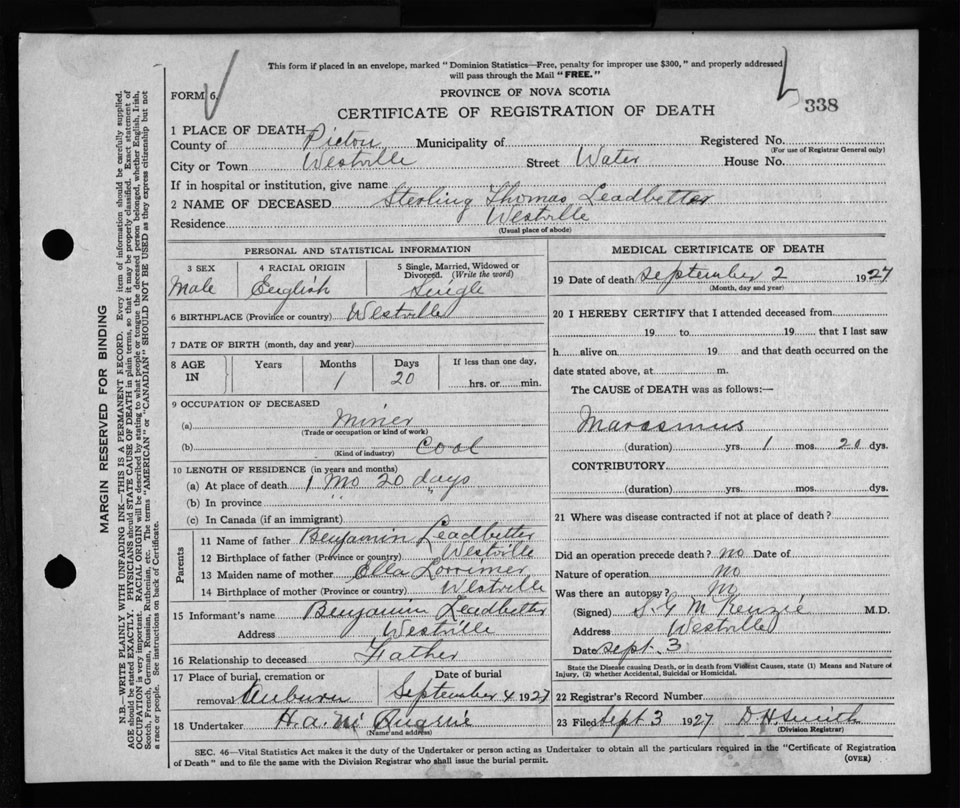 This form if placed in an envelope, marked "Dominion Statistics—Free, penalty for improper use $300," and properly addressed
will pass through the Mail "FREE."
FORM 6.
PROVINCE OF NOVA SCOTIA
338
CERTIFICATE OF REGISTRATION OF DEATH
1 PLACE OF DEATH—
County of Pictou Municipality of Registered No.
(For use of Registrar General only)
City or Town Westville Street Water House No.
If in hospital or institution, give name
2 NAME OF DECEASED Sterling Thomas Leadbetter
Residence Westville
(Usual place of abode)
PERSONAL AND STATISTICAL INFORMATION
3 SEX 4 RACIAL ORIGIN 5 Single, Married, Widowed or
Divorced. (Write the word)
Male English Single
6 BIRTHPLACE (Province or country) Westville
7 DATE OF BIRTH (month, day and year)
8 AGE IN Years Months Days If less than one day,
1 20 hrs. or min.
9 OCCUPATION OF DECEASED
(a) Miner
(Trade or occupation or kind of work)
(b) Coal
(Kind of industry)
10 LENGTH OF RESIDENCE (in years and months)
(a) At place of death 1 Mo 20 days
(b) In province " "
(c) In Canada (if an immigrant)
Parents
11 Name of father Benjamin Leadbetter
12 Birthplace of father (Province or country) Westville
13 Maiden name of mother Ella Lorrimer
14 Birthplace of mother (Province or country) Westville
15 Informant's name Benjamin Leadbetter
Address Westville
16 Relationship to deceased Father
17 Place of burial, cremation or Date of burial
removal Auburn September 4 1927
18 Undertaker H. A. Mc
(Name and address)
MEDICAL CERTIFICATE OF DEATH
19 Date of death September 2 1927
(Month, day and year)
20 I HEREBY CERTIFY that I attended deceased from
19 to 19 that I last saw
h alive on 19 and that death occurred on the
date stated above, at m.
The CAUSE of DEATH was as follows:—
Marasmus
(duration) yrs. 1 mos. 20 dys.
CONTRIBUTORY
(duration) yrs. mos. dys.
21 Where was disease contracted if not at place of death?
Did an operation precede death? no Date of
Nature of operation no
Was there an autopsy? no
(Signed) S. G McKenzie M.D.
Address Westville
Date Sept. 3
State the Disease causing Death, or in death from Violent Causes, state (1) Means and Nature of
Injury, (2) whether Accidental, Suicidal or Homicidal.
22 Registrar's Record Number
23 Filed Sept 3 1927 D. H. Smith
(Division Registrar)
SEC. 46—Vital Statistics Act makes it the duty of the Undertaker or person acting as Undertaker to obtain all the particulars required in the "Certificate of Registration
of Death" and to file the same with the Division Registrar who shall issue the burial permit.
(OVER)
MARGIN RESERVED FOR BINDING
N.B.—WRITE PLAINLY WITH UNFADING INK—THIS IS A PERMANENT RECORD. Every item of information should be carefully supplied.
AGE should be stated EXACTLY. PHYSICIANS should STATE CAUSE OF DEATH in plain terms, so that it may be properly classified. Exact statement of
OCCUPATION is very important. RACIAL ORIGIN will be described by stating to what people or tongue the deceased person belonged, whether English, Irish,
Scotch, French, German, Russian, Ruthenian, etc. The terms "AMERICAN" or "CANADIAN" SHOULD NOT BE USED as they express citizenship but not
a race or people. See instructions on back of Certificate.